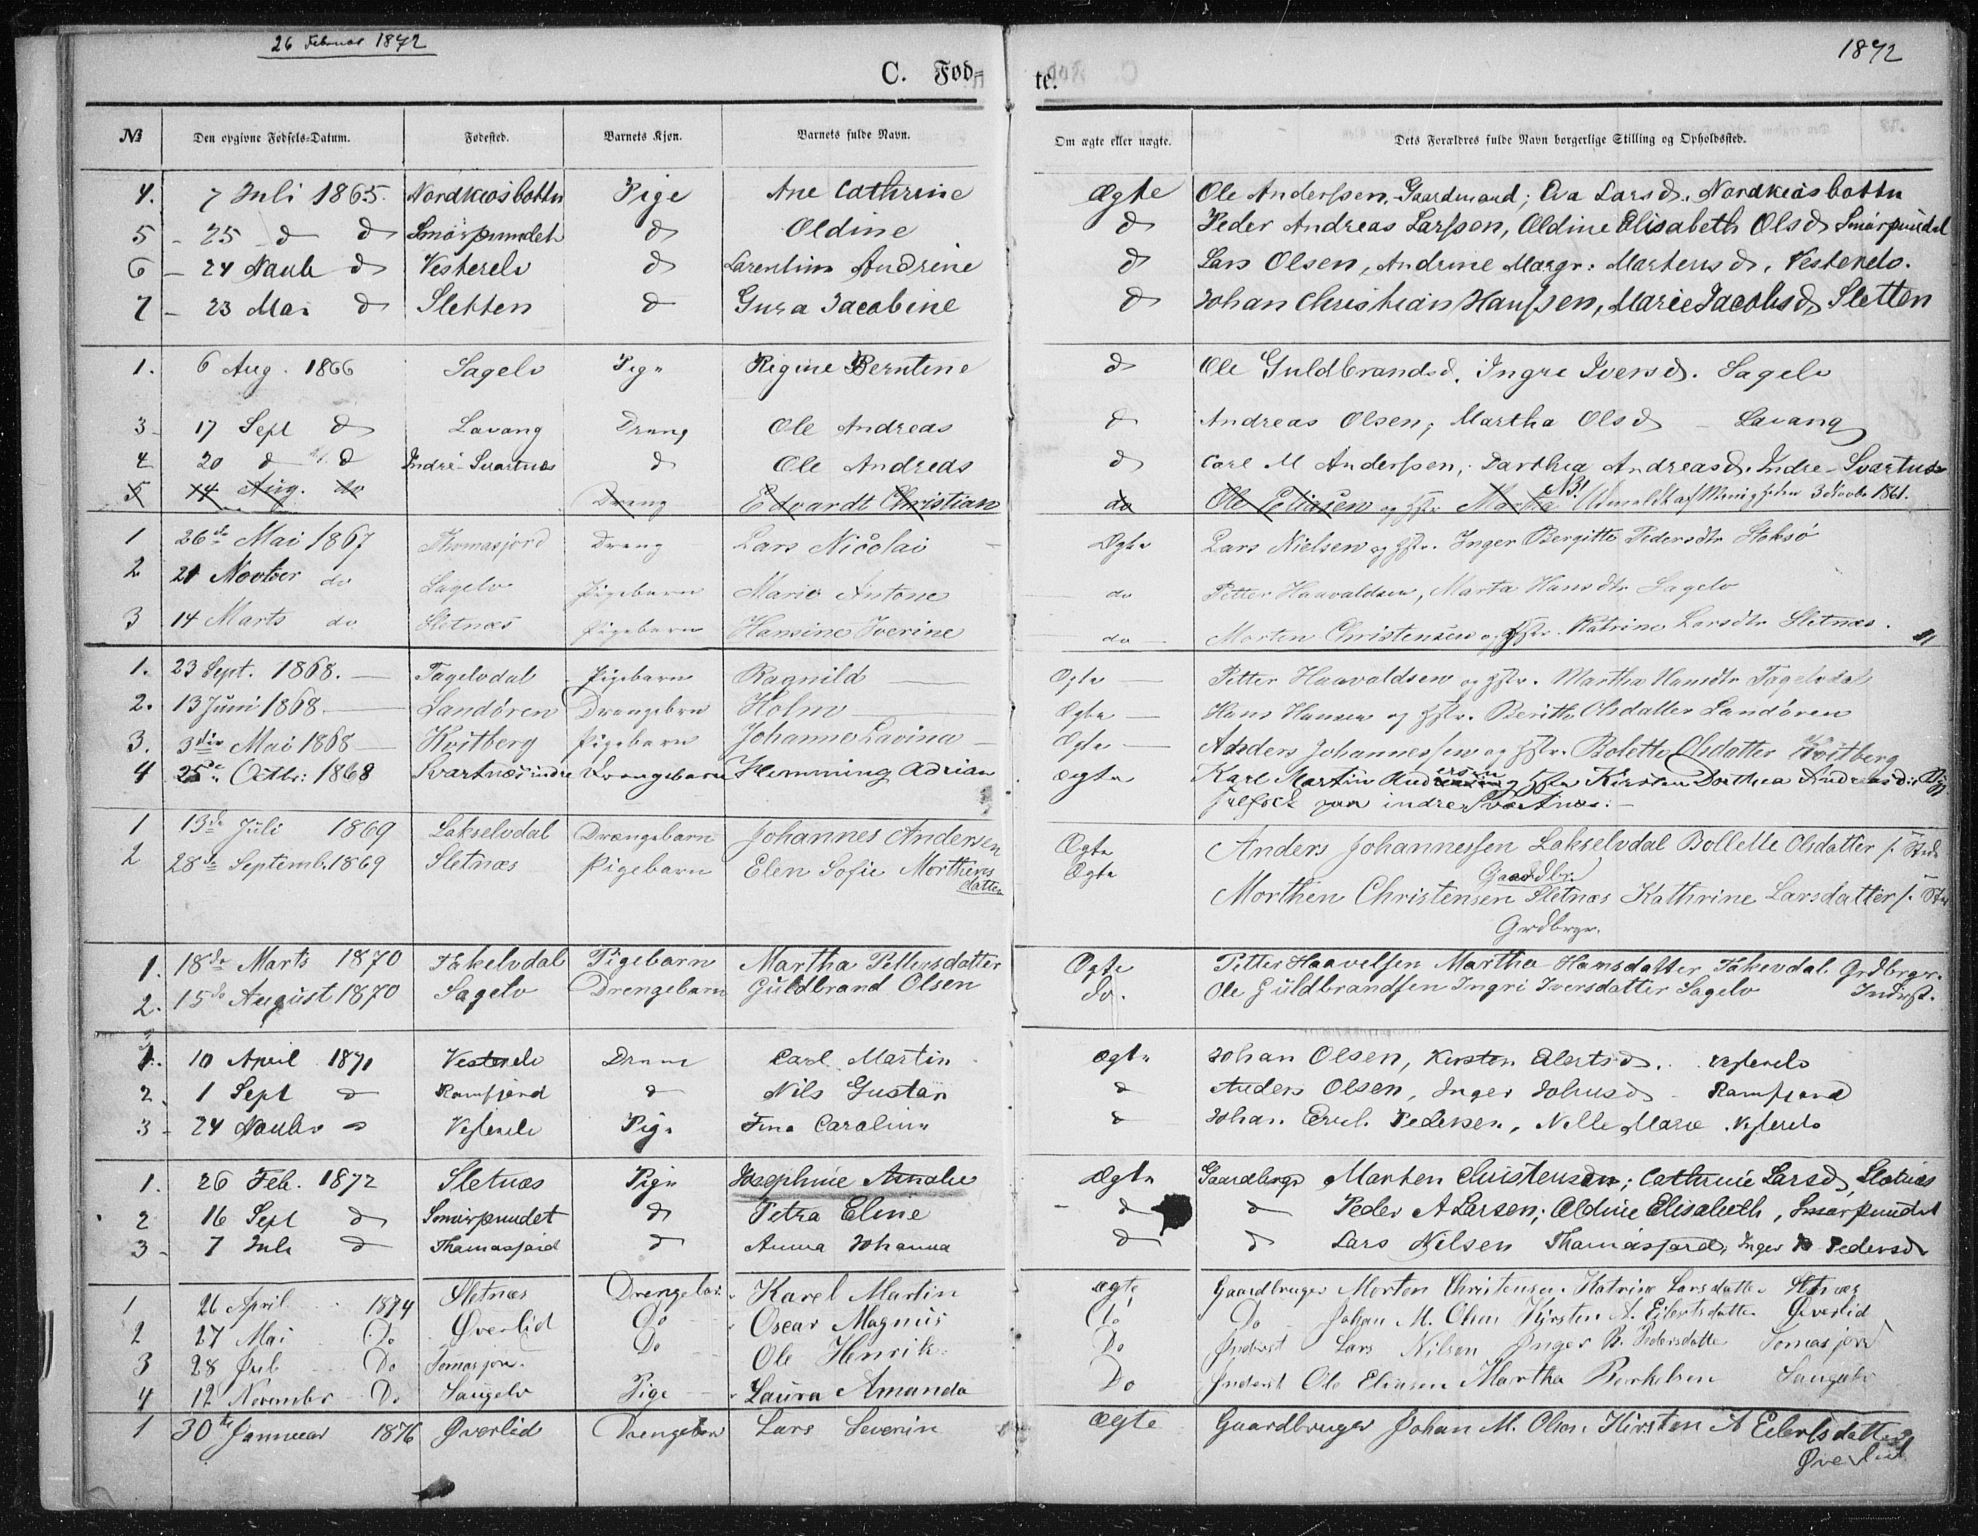 26 Februar 1872
1872
C. Fød-
te.
№ Den opgivne Fødsels-Datum. Fødested. Barnets Kjøn. Barnets fulde Navn. Om ægte eller uægte. Dets Forældres fulde Navn borgerlige Stilling og Opholdssted.
4. 7 Juli 1865. Nordkiosbottn Pige Ane Cathrine Ægte Ole Anderssen, Gaardmand; Eva Larsd. Nordkiosbottn
5 - 25 d d Smörpundet d Oldine d Peder Andreas Larssen, Oldine Elisabeth Olsd Smörpundet
6 - 24 Novb d Vesterelv d Larentine Andrine d Lars Olsen, Andrine Margr: Martensd, Vesterelv.
7 - 23 Mai d Sletten d Gura Jacobine d Johan Christian Hanssen, Marie Jacobsd Sletten
1. 6 Aug. 1866 Sagelv Pige Regine Berntine d Ole Guldbrandsd. Ingre Iversd. Sagelv
3- 17 Sept d Lavang Dreng Ole Andreas d Andreas Olsen; Martha Olsd - Lavang
4 20 d d Indre-Svartnæs d Ole Andreas d Carl M Anderssen; Dorthea Andreasd. Indre-Svartnæs
5 14 Aug. do Dreng Edvardt Christian do Ole Eliasen og Hstr. Martha NB! 3 Novbr 1861.
1 26de Mai 1867 Thomasjord Dreng Lars Nicolai - Ægte Lars Nielsen og Hstr. Inger Bergitte Pedersdtr Stoksø
2 21 Novber do Sagelv Pigebarn Marie Antone do Petter Haavaldsen, Marta Hansdtr Sagelv
3 14 Marts do Sletnæs Pigebarn Hansine Iverine do Morten Christensen og Hstr. Katrine Larsdtr Sletnæs.
1. 23 Sept. 1868. - Tagelvdal Pigebarn Ragnild Ægte Petter Haavaldsen og Hstr. Martha Hansdtr Tagelvdal
2. 13 Juni 1868 Sandören Drengebrn Holm Ægte - Hans Hansen og Hstr. Berith Olsdatter Sandören
3. 3die Mai 1868 - Kvitberg Pigebarn Johanne Lavina - Ægte - Anders Johannessen og Hstr. Bolette Olsdatter Kvitberg
4 25de Octbr: 1868 Svartnæs indre Drengebarn Hemming Adrian ægte Karl Martin Andersen og Hstr Kirsten Dorthea Andreasd:
paa indre Svartnæs: -
1 13de Juli 1869 Lakselvdal Drængebarn Johannes Andersen Ægte Anders Johannessen Lakselvdal Bollette Olsdatter
2 28de Septemb. 1869 Sletnæs Pigebarn Elen Sofie Morthens datter Ægte Gaardbr.
Morthen Christensen Sletnæs Kathrine Larsdatter
Grdbrgr.
1. 18de Marts 1870 Takelvdal Pigebarn Martha Pettersdatter Ægte Petter Haavelsen Martha Hansdatter Takevdal. Grdbrgr.
2. 15de August 1870 Sagelv Drengebarn Guldbrand Olsen do. Ole Guldbrandsen Ingri Iversdatter Sagelv Inderst.
1. 10 April 1871 Vesterelv Dreng Carl Martin ægte Johan Olsen, Kirsten Eilertsd. Vesterelv
2. 1 Sept d Ramfjord d Nils Gustav d Anders Olsen, Inger Johnsd - Ramfjord
3- 24 Novbr d Vesterelv Pige Fine Caroline d Johan Erick Pedersen, Nelle Marie Vesterelv
1. 26 Feb. 1872 Sletnæs Pige Josephine Amalie Ægte Gaardbrgr Morten Christensen; Cathrine Larsd, Sletnæs
2 16 Sept d Smörpundet d Petra Eline - d d Peder A Larsen; Oldine Elisabeth, Smörpundet
3- 7 Juli d Thomasjord d Anna Johanna d d Lars Nilsen Thomasjord, Inger B Pedersd
1 26 April 1874 Sletnæs Drengebarn Karel Martin ægte Gaardbruger Morten Christensen. Katrine Larsdatter Sletnæs
2 27 Mai Do Øverlid Do Oscar Magnus Do Do Johan M. Olsen Kirsten A. Eilertsdatter Øverlid
3 28 Juli Do Tomasjord Do Ole Henrik Do Inderst Lars Nilsen Inger B. Pedersdatter Tomasjord
4 12 November Do Saugelv Pige Laura Amanda Do Inderst Ole Eliasen Martha Berkelsen Saugelv
1 30te Januar 1876 Øverlid Drengebarn Lars Severin ægte Gaardbruger Johan M. Olsen. Kirsten A Eilertsdatter
Øverlid